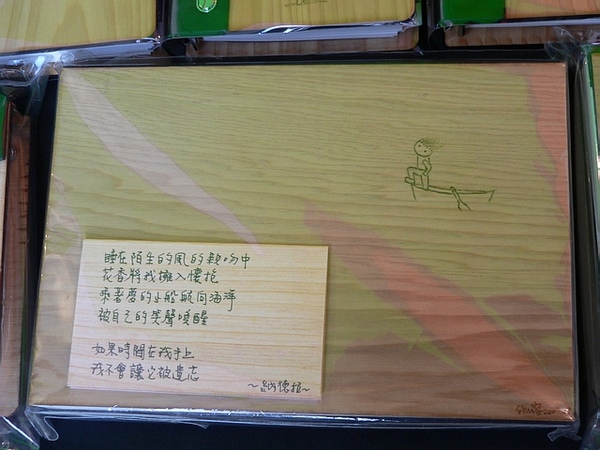 睡在陌生的風的熱吻中
花香將我擁入懷抱
乘著夢的小船航向海洋
被自己的笑聲喚醒
如果時間在我手上
我不會讓它被遺忘
～納德拉～